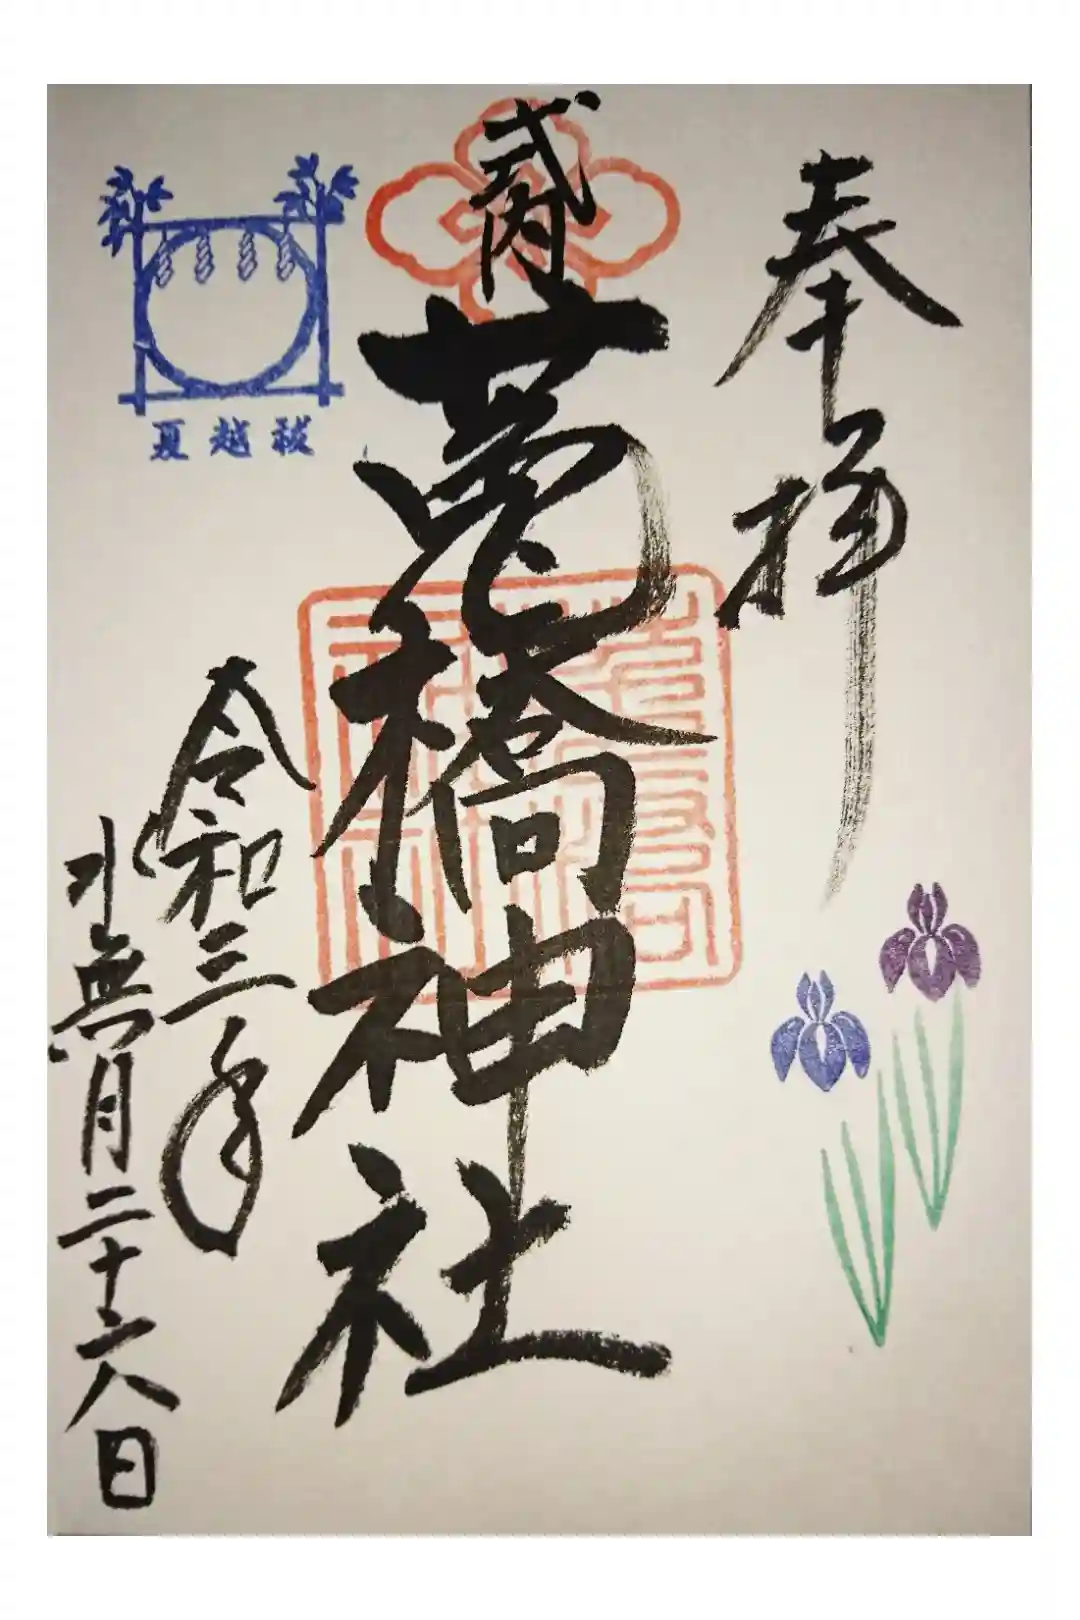 奉拝
式内
菟橋神社
令和三年
水無月二十六日
夏越祓